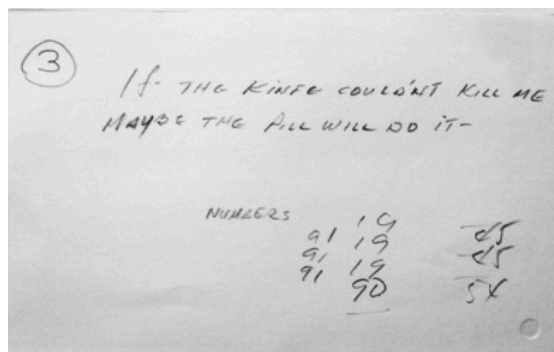 3
If- THE KINFE COULDN'T KILL ME
MAYBE THE PILL WILL DO IT-
NUMBERS 19
91 19 45
91 19 45
91 90 54